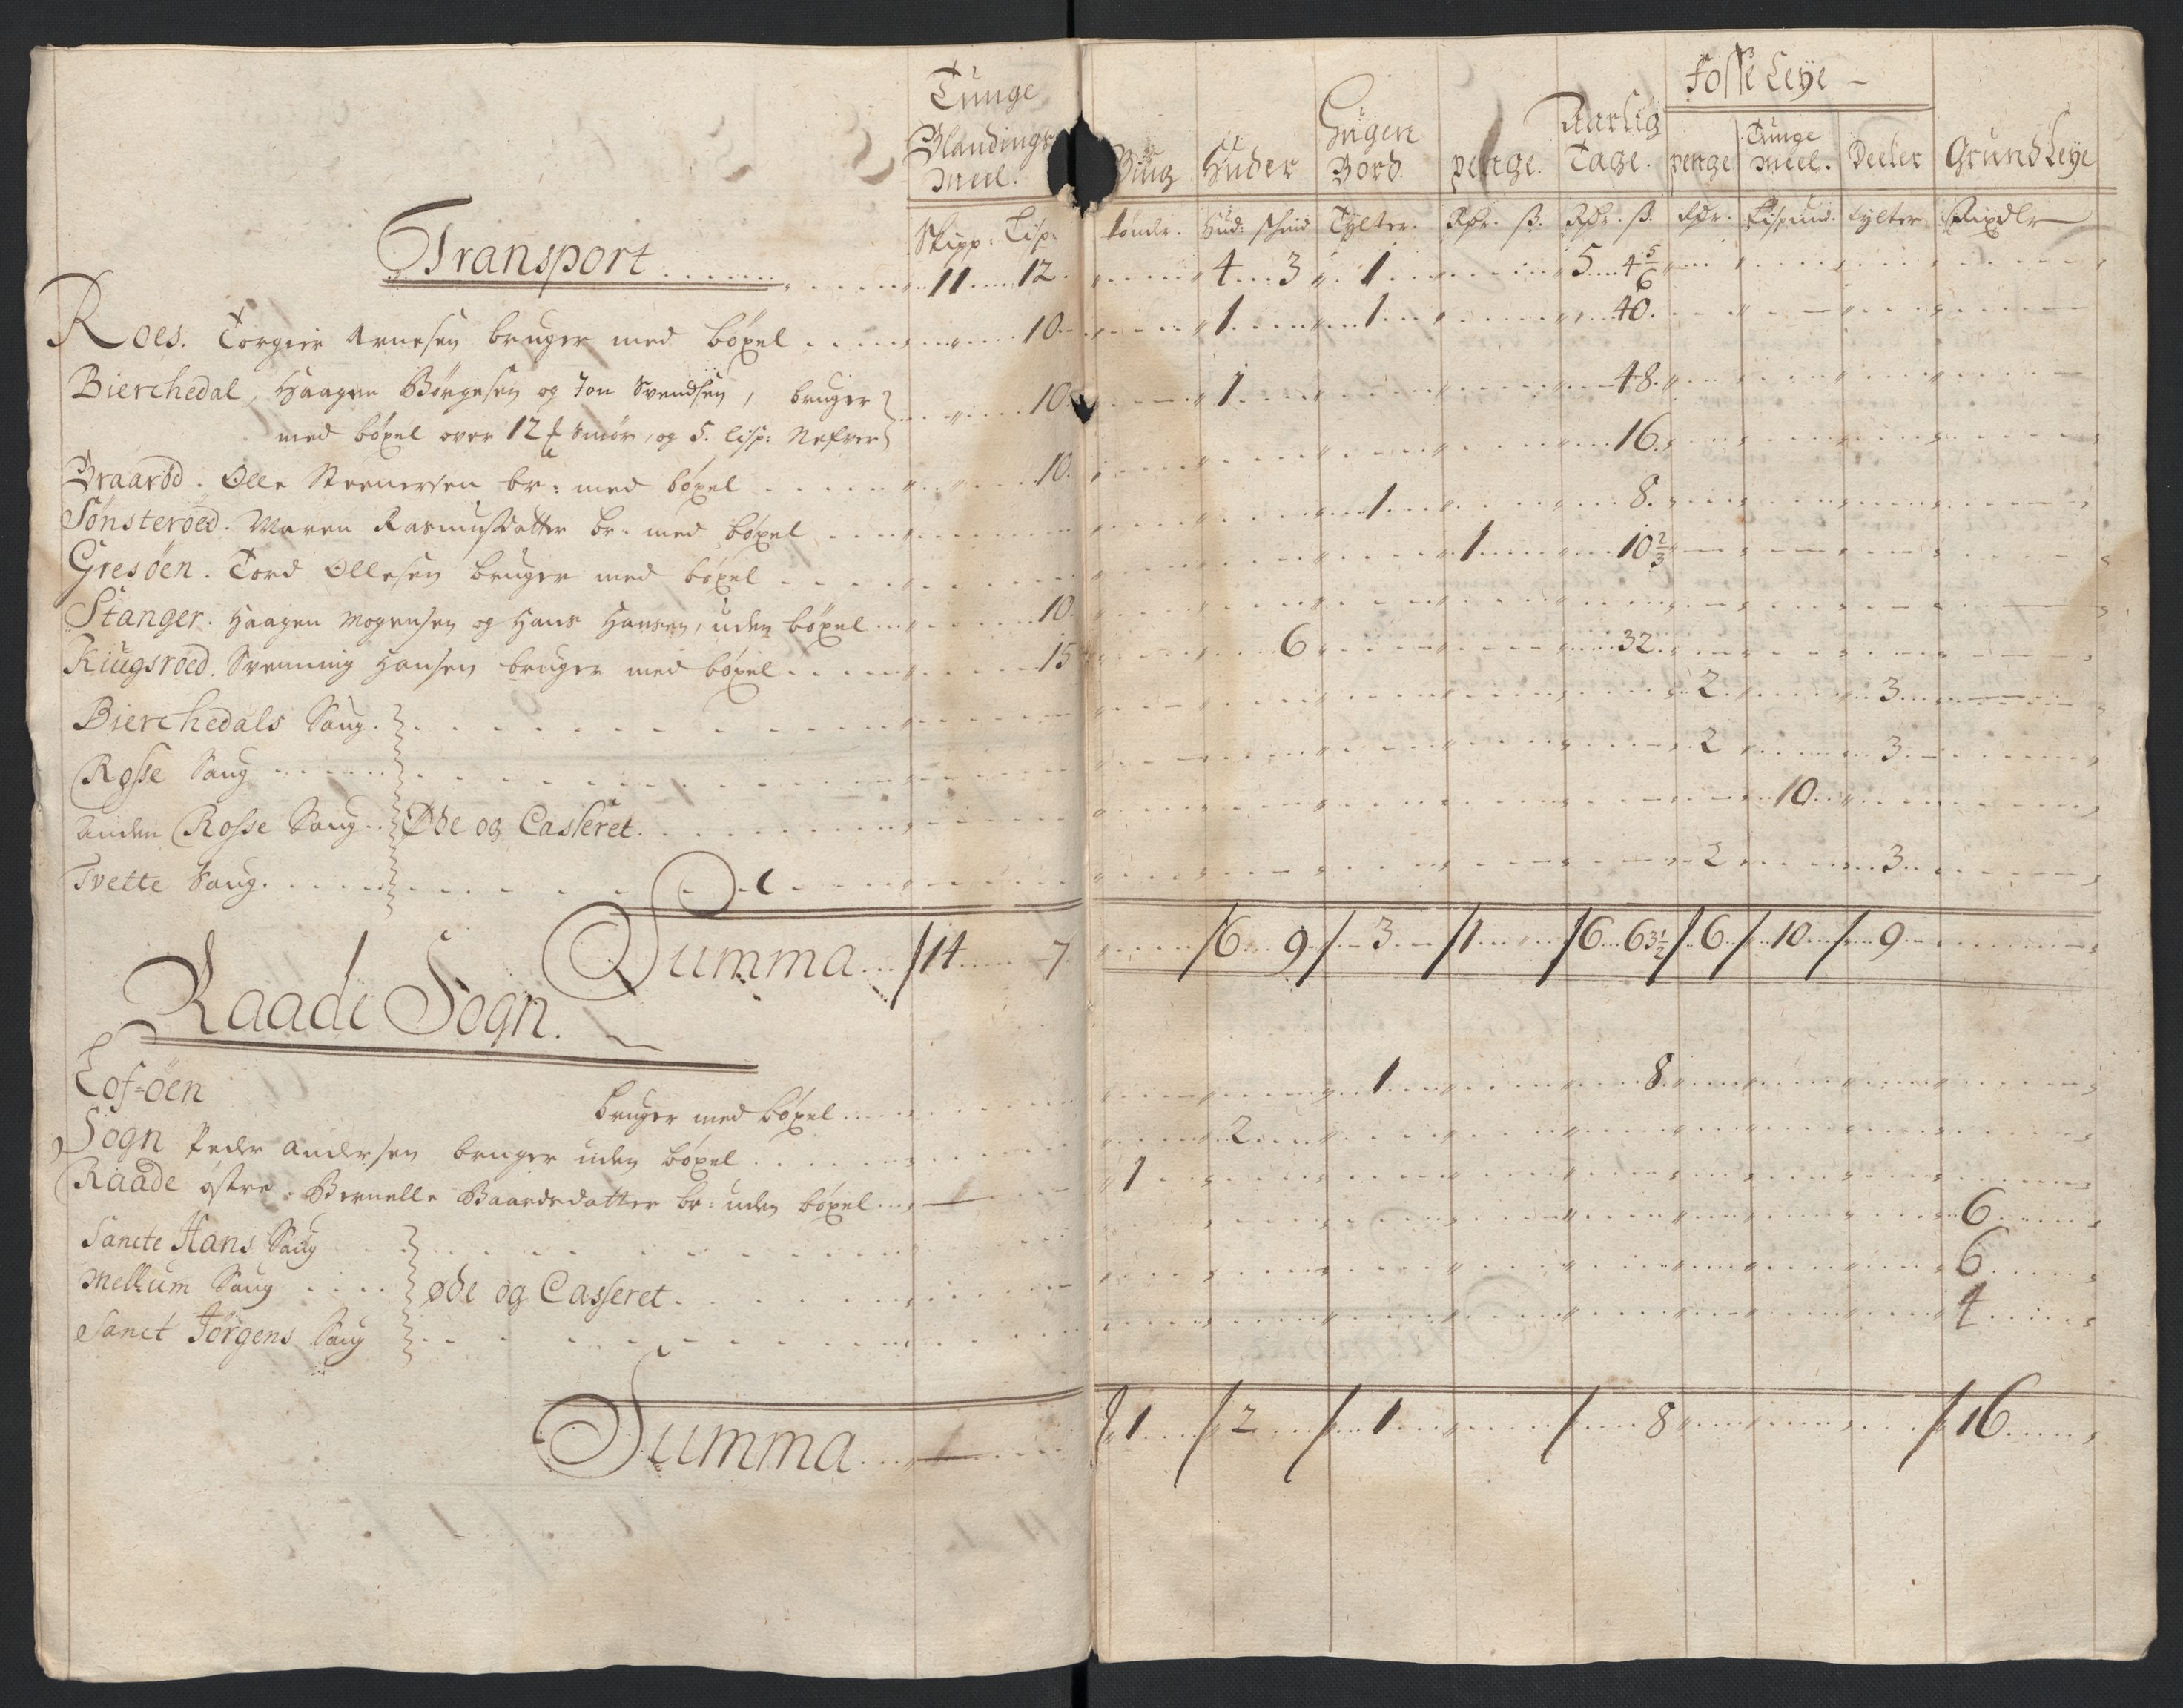 Tunge Blandings Meel. Biug Huder Hugen Bord. penge. Aarlig Tage. Fosse Leÿe –
penge Tunge Meel. Deeler Grund Leÿe
Skipp: Lisp: tøndr. Hud: skind Tÿlter. Rdr. ß. Rdr. ß. Rdr. Lispund. tÿlter Rixdlr
Transport 11 12 4 3 1 5 4 5/6
Roes. Torgier Arnesen bruger med bøxel 10 1 1 40 6
Bierchedal, Haagen Børgesen og Jon Svendsen, bruger 10 1 48
med bøxel over 12 Smør, og 5. Lisp: Nefver
Braarød. Olle Steenersen br: med bøxel 10 16
Sønsterøed. Maren Rasmusdatter br. med bøxel 1 8
Gresøen. Tord Ollesen bruger med bøxel 1 10 2/3
Stanger. Haagen Mogensen og Hans Hansen, uden bøxel 10
Kiugsrøed. Svenning Hansen bruger med bøxel 15 6 32
Bierchedals Saug. 2 3
Rosse Saug 2 3
Anden Rosse Saug Øde og Casseret. 10
Tvette Saug. 2 3
Summa 14 7 6 9 3 1 6 63 1/2 6 10 9
Raade Sogn.
Lof=øen bruger med bøxel 1 8
Sogn Peder Andersen bruger uden bøxel 2
Raade østre. Pernelle Baardsdatter br: uden bøxel 1
Sancte Hans Saug 6
Mellum Saug øde og Casseret. 6
Sanct Jørgens Saug 4
Summa 1 2 1 8 16